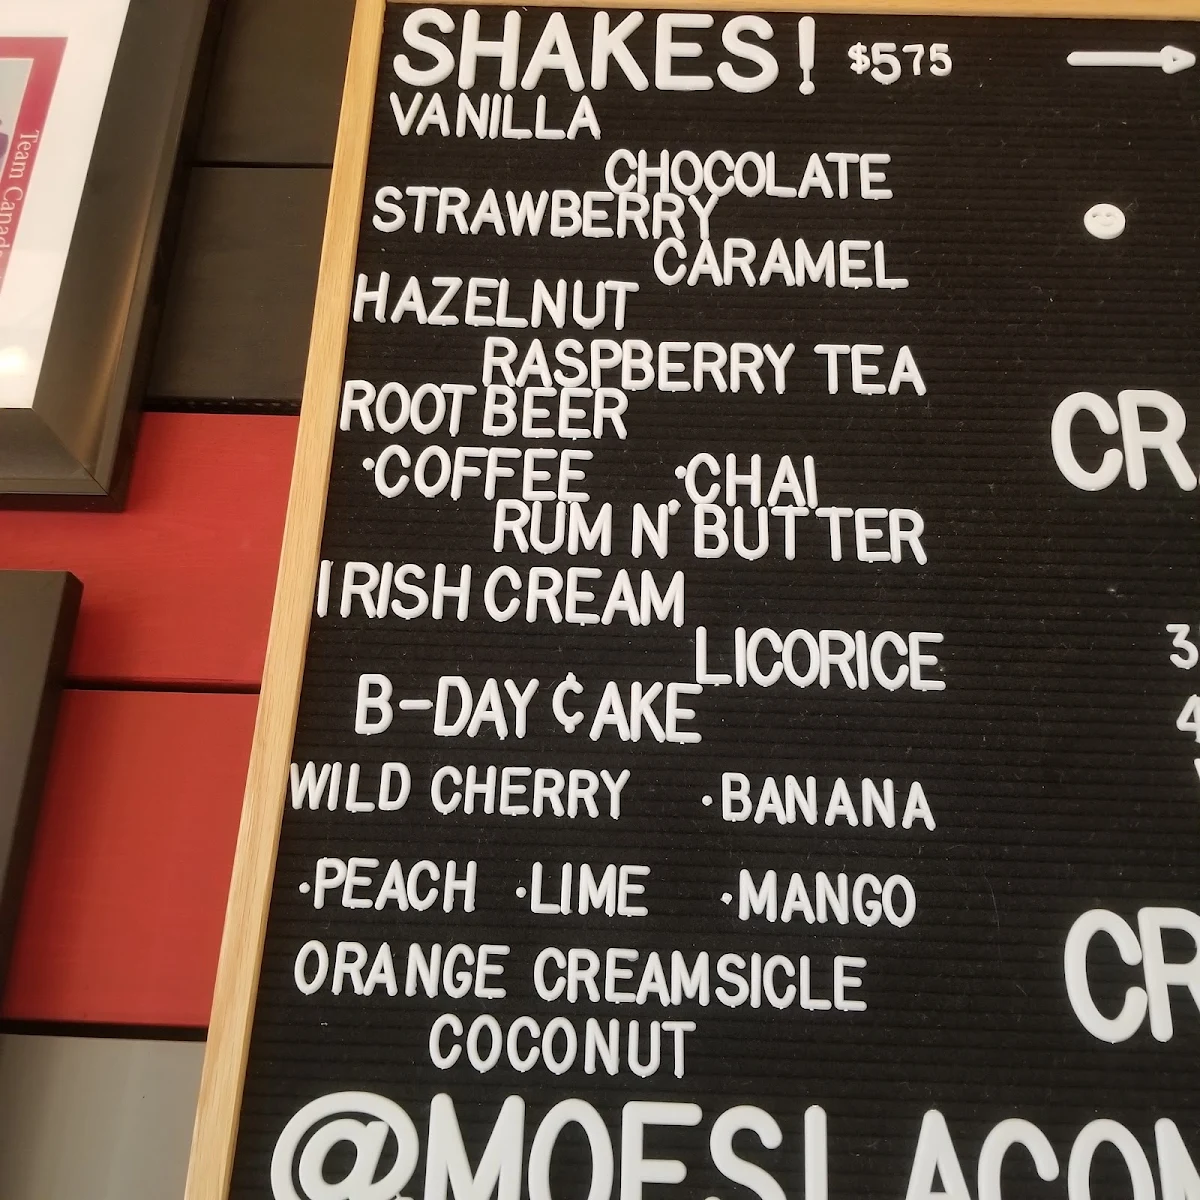 SHAKES! $575
VANILLA
CHOCOLATE
STRAWBERRY
CARAMEL
HAZELNUT
RASPBERRY TEA
ROOT BEER
·COFFEE ·CHAI
RUM N' BUTTER
IRISH CREAM
LICORICE
B-DAY ¢AKE
WILD CHERRY ·BANANA
·PEACH ·LIME ·MANGO
ORANGE CREAMSICLE
COCONUT
@MOESLACOM
CR
3
4
CR
Team Canada